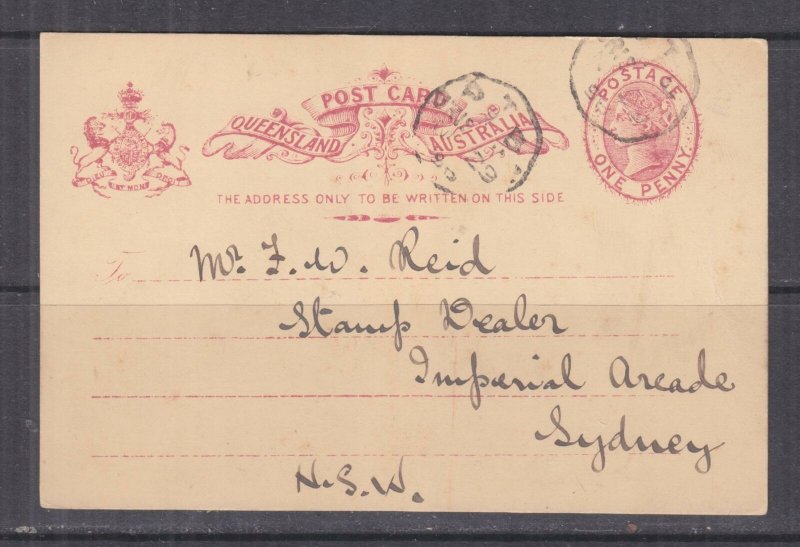 POST CARD
QUEENSLAND AUSTRALIA
POSTAGE
ONE PENNY
THE ADDRESS ONLY TO BE WRITTEN ON THIS SIDE
To Mr. F. W. Reid
Stamp Dealer
Imperial Arcade
Sydney
N.S.W.